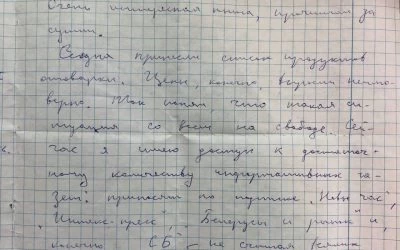 Очень интересная книга, прочитал за
сутки.
Сегодня принесли список продуктов
отоварки. Цены, конечно, выросли неимо-
верно. Так понял, что такая си-
туация со всем на свободе. Сей-
час я имею доступ к достаточ-
ному количеству информативных га-
зет: приносят по путинке "Новы час",
"Интекс-пресс", "Белорусы и рынок" и,
конечно "СБ" – не считая разных